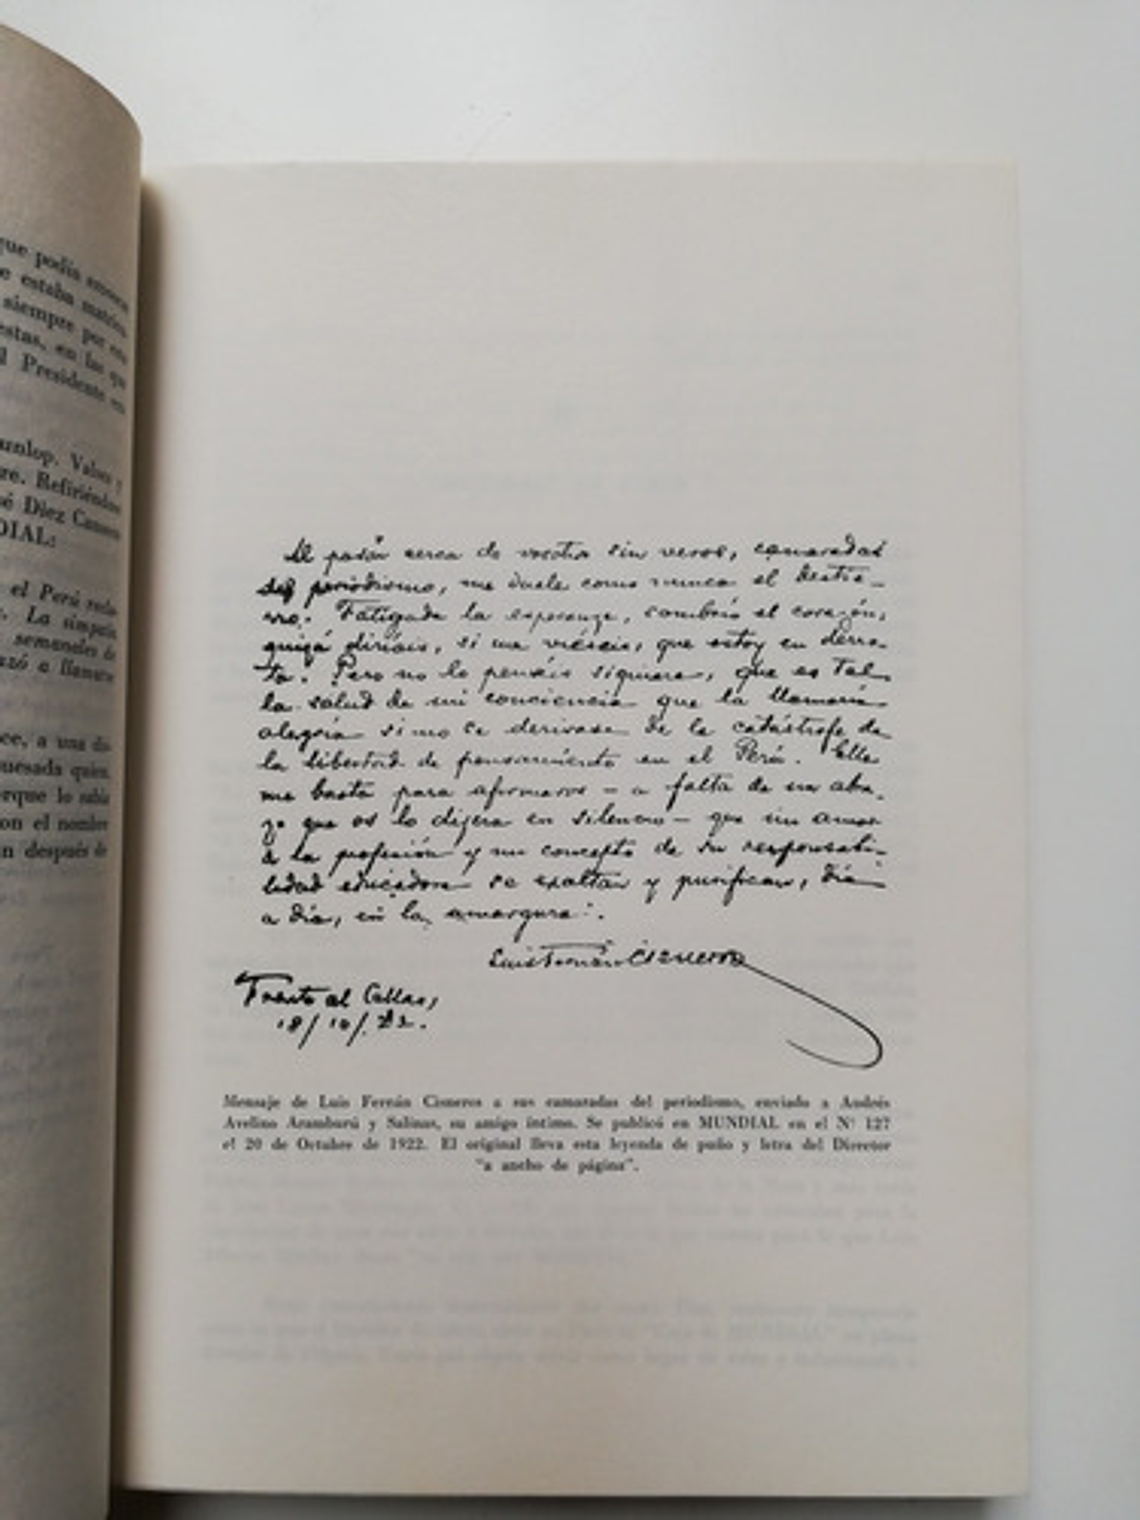 que podía
e estaba
siempre por
estas, en las que
l Presidente
Valses y
re. Refiriéndose
sé Diez Canseco
DIAL:
e el Perú
. La simpatía
semanales de
a llamarse
ce, a una
quesada quien,
orque lo sabía
on el nombre
n después de
Al pasar cerca de vosotros sin veros, camaradas
del periodismo, me duele como nunca el destie-
rro. Fatigada la esperanza, sombrío el corazón,
quizá diríais, si me viéseis, que estoy en derro-
ta. Pero no lo penséis siquiera, que es tal
la salud de mi conciencia que la llamaría
alegría si no se derivase de la catástrofe de
la libertad de pensamiento en el Perú. Ella
me basta para afirmaros – a falta de un abra-
zo que os lo dijera en silencio – que mi amor
a la profesión y mi concepto de su responsabi-
lidad educadora se exaltan y purifican, día
a día, en la amargura.
Luis Fernán Cisneros
Frente al Callao,
18/10/22.
Mensaje de Luis Fernán Cisneros a sus camaradas del periodismo, enviado a Andrés
Avelino Aramburú y Salinas, su amigo íntimo. Se publicó en MUNDIAL en el Nº 127
el 20 de Octubre de 1922. El original lleva esta leyenda de puño y letra del Director
"a ancho de página".